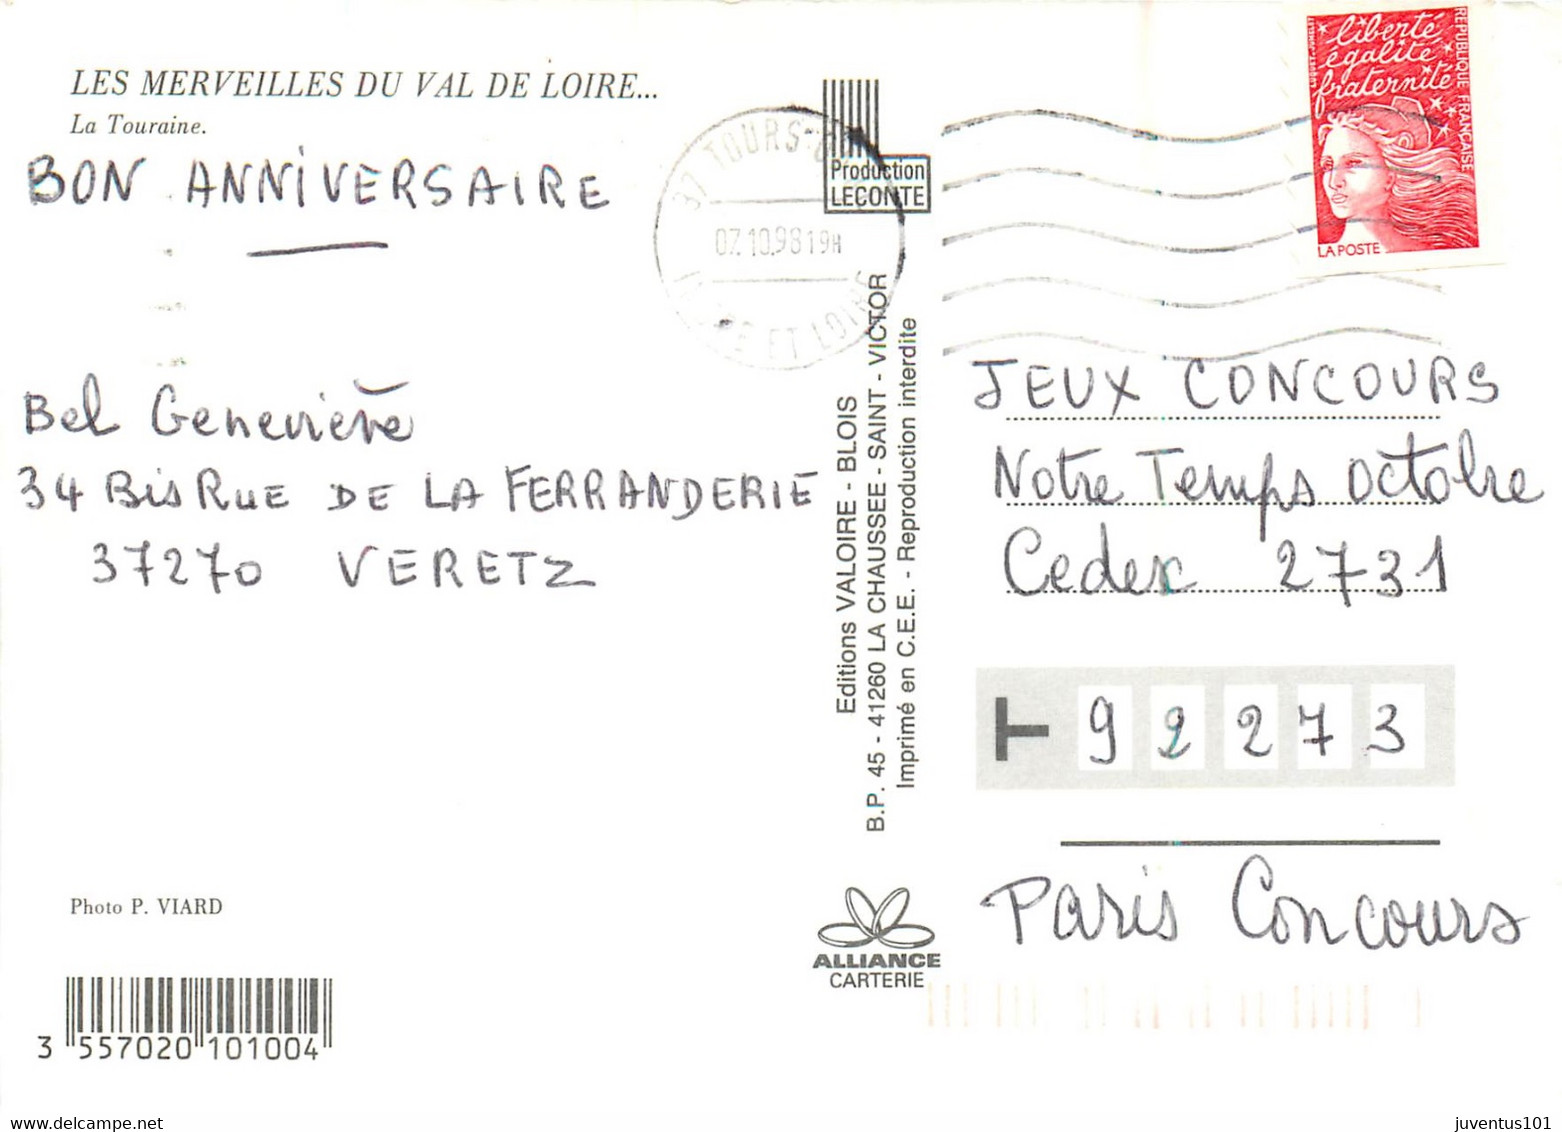 LES MERVEILLES DU VAL DE LOIRE...
La Touraine.
BON ANNIVERSAIRE
Bel Geneviève
34 Bis RUE DE LA FERRANDERIE
37270 VERETZ
Photo P. VIARD
3 557020 101004
37 TOURS
07.10.98 19H
ET LOIRE
Production
LECONTE
Editions VALOIRE - BLOIS
B.P. 45 - 41260 LA CHAUSSEE - SAINT - VICTOR
Imprimé en C.E.E. - Reproduction interdite
ALLIANCE
CARTERIE
liberté
égalité
fraternité
REPUBLIQUE FRANÇAISE
LA POSTE
JEUX CONCOURS
Notre Temps octobre
Cedex 2731
92273
Paris Concours
juventus101